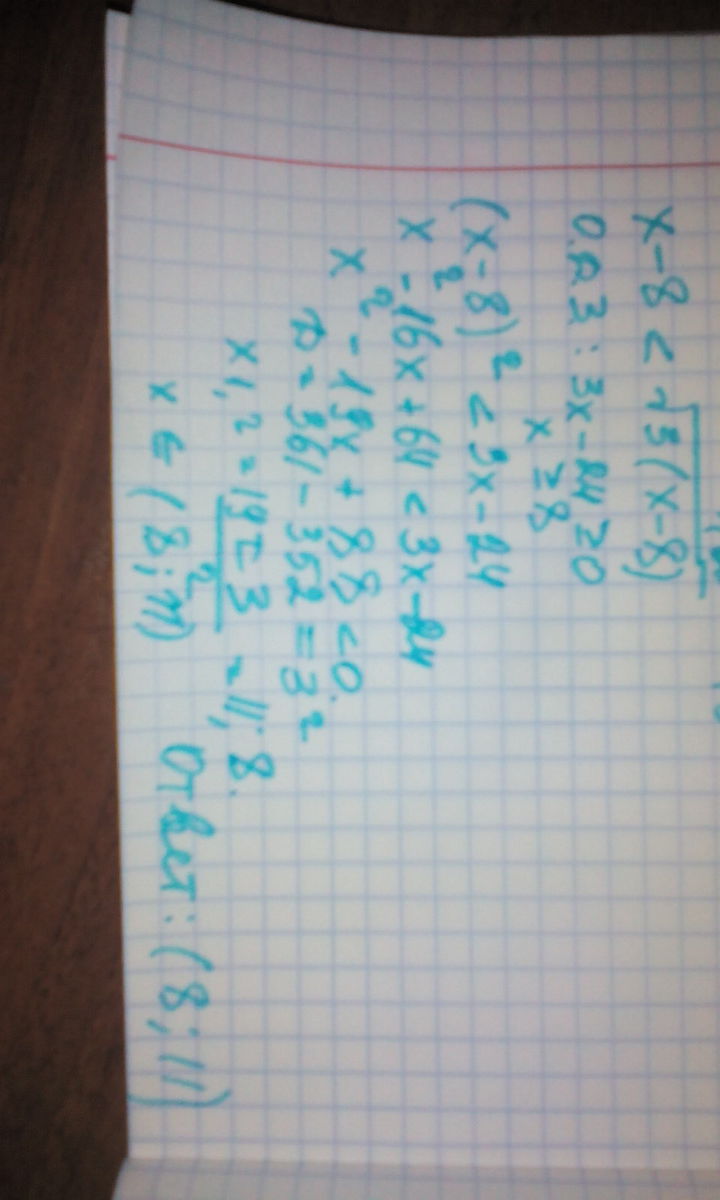 x-8 < √3(x-8)
О.Д.З: 3x-24≥0
x ≥8
(x-8)² < 3x-24
x²-16x+64 < 3x-24
x²-19x+88<0.
D=361-352=3²
x1,2 = 19±3/2 = 11; 8.
x ∈ (8;11) Ответ: (8; 11)